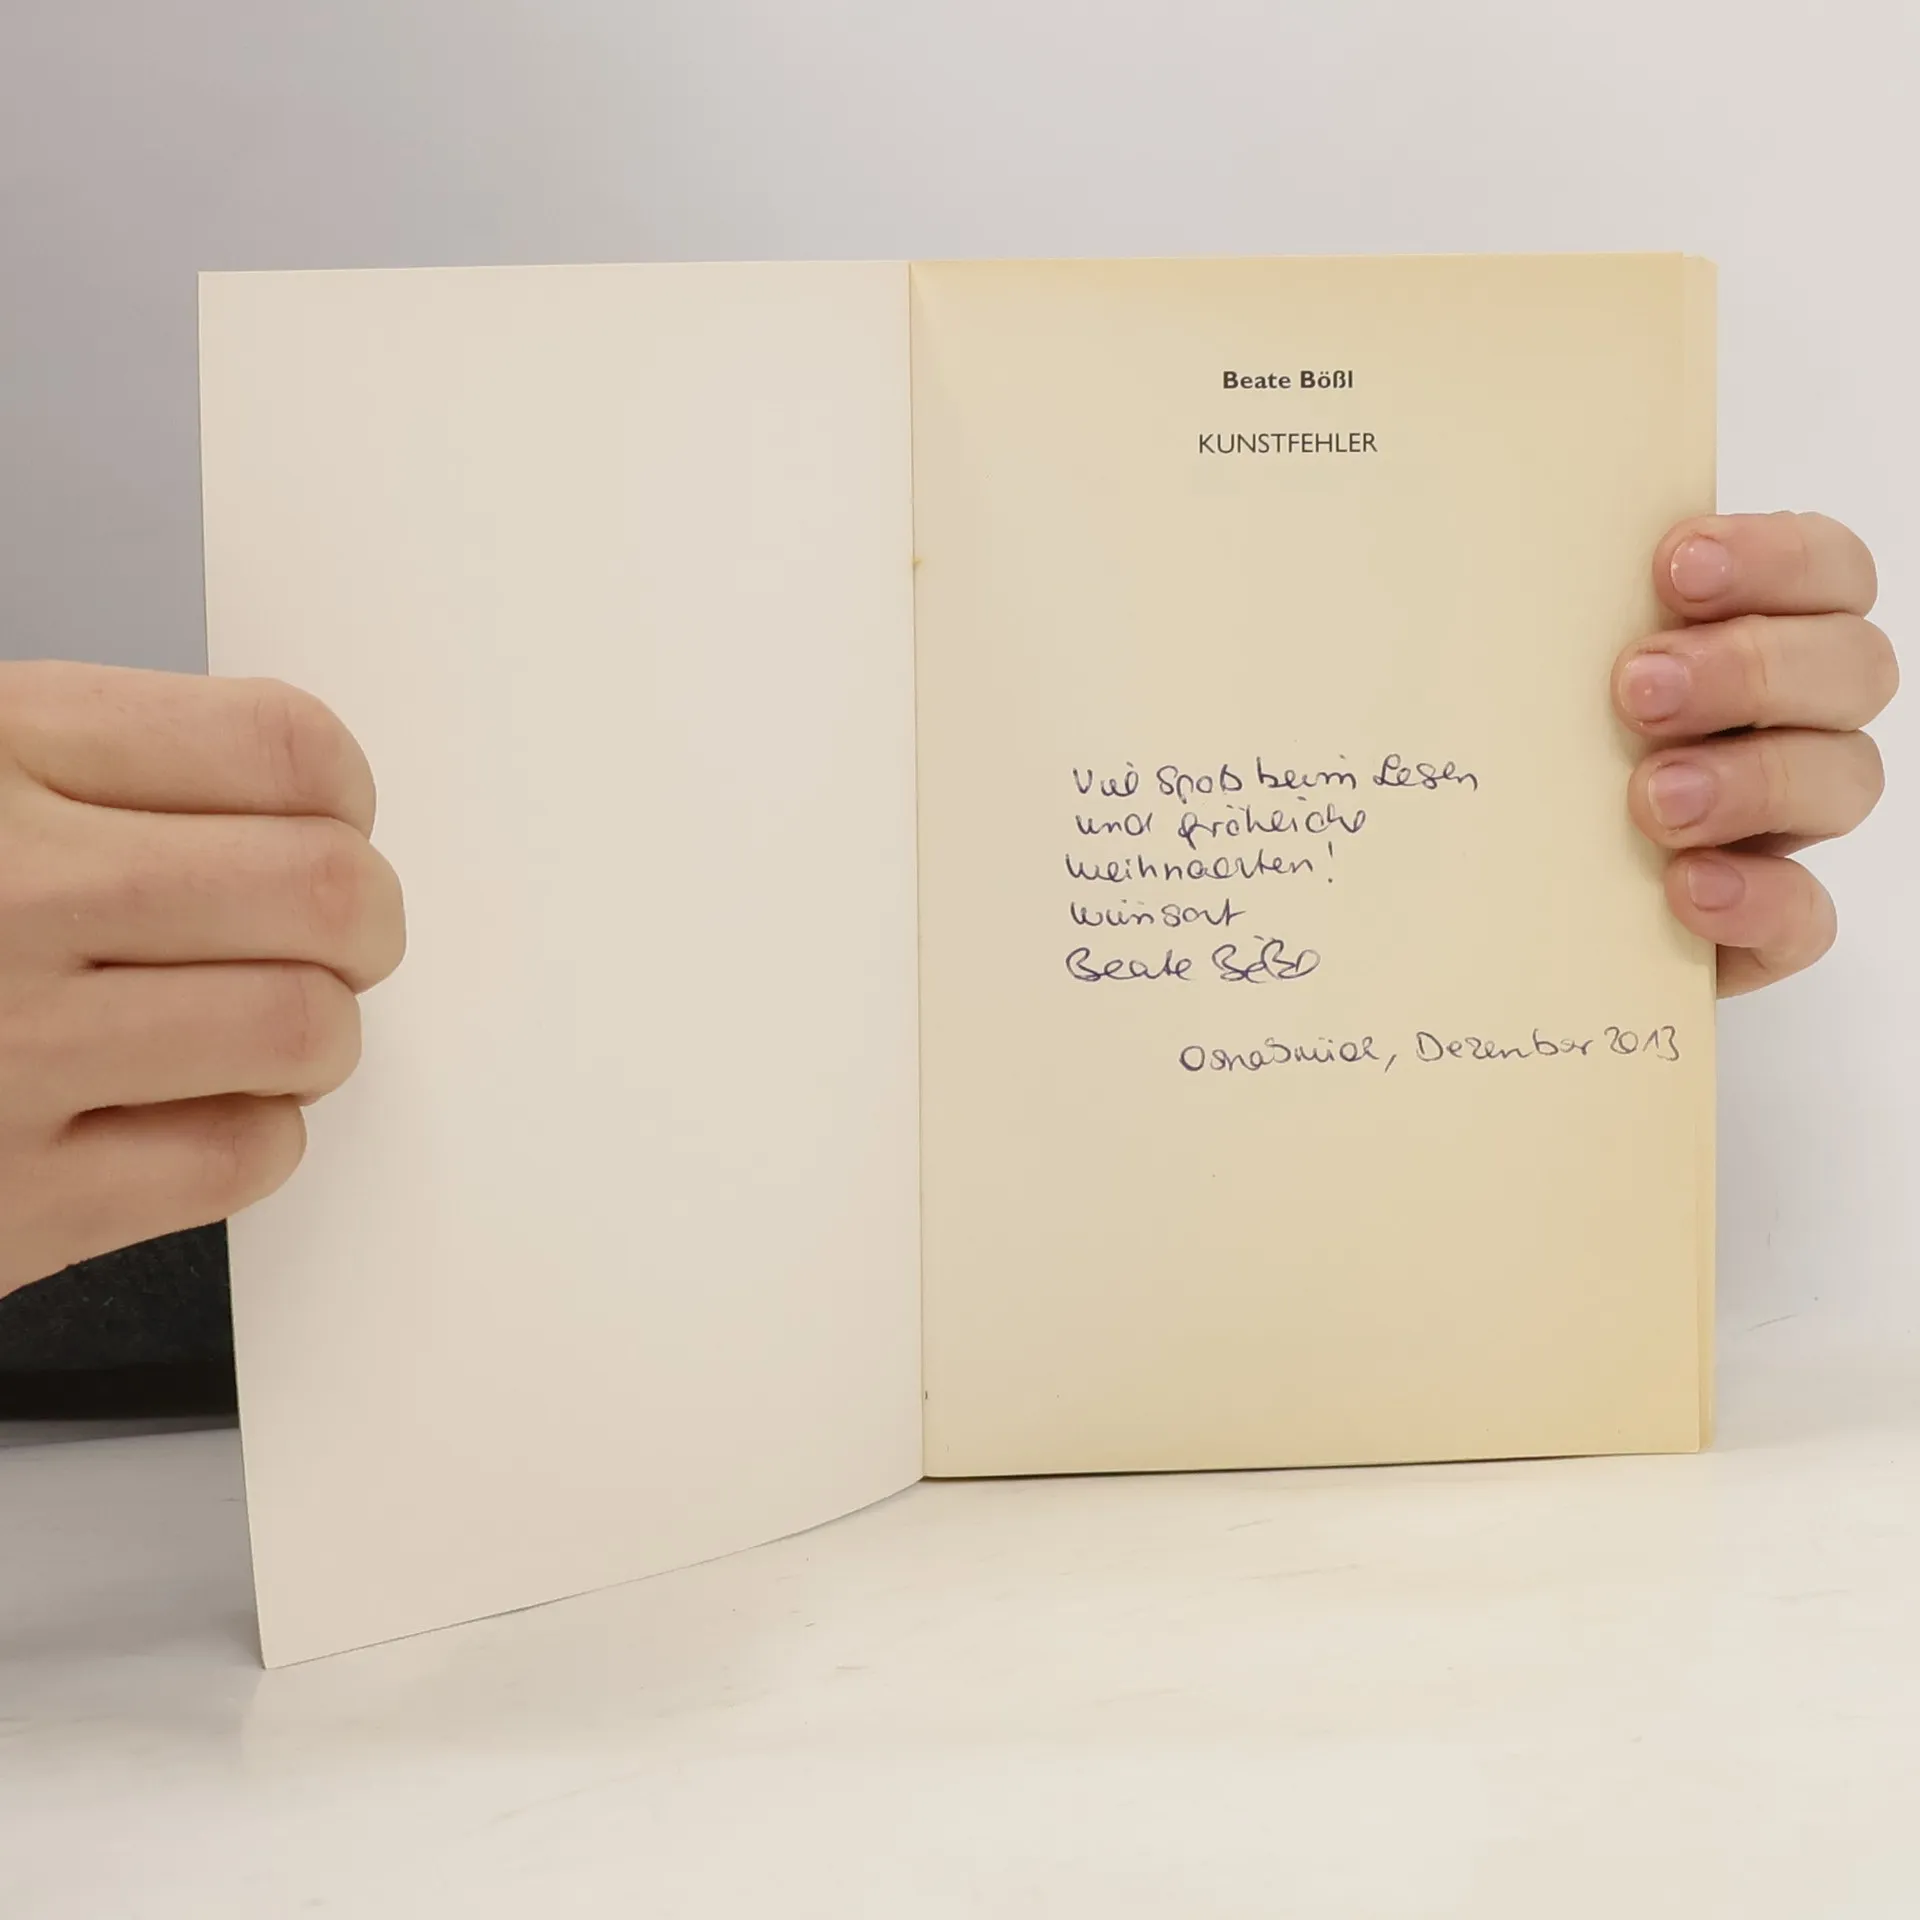 Beate Bößl
KUNSTFEHLER
Viel Spaß beim Lesen
und fröhliche
Weihnachten!
wünscht
Beate Bößl
Osnabrück, Dezember 2013